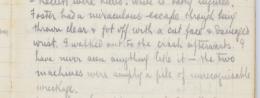 Foster had a miraculous escape through being
thrown clear & got off with a cut face & damaged
wrist. I walked out to the crash afterwards. I
have never seen anything like it – the two
machines were simply a pile of unrecognisable
wreckage.